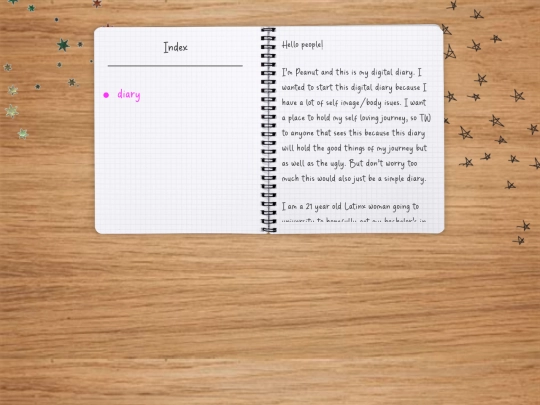 Index
diary
Hello people!
I'm Peanut and this is my digital diary. I
wanted to start this digital diary because I
have a lot of self image/body isues. I want
a place to hold my self loving journey, so TW
to anyone that sees this because this diary
will hold the good things of my journey but
as well as the ugly. But don't worry too
much this would also just be a simple diary.
I am a 21 year old Latinx woman going to
university to hopefully get my bachelor's in